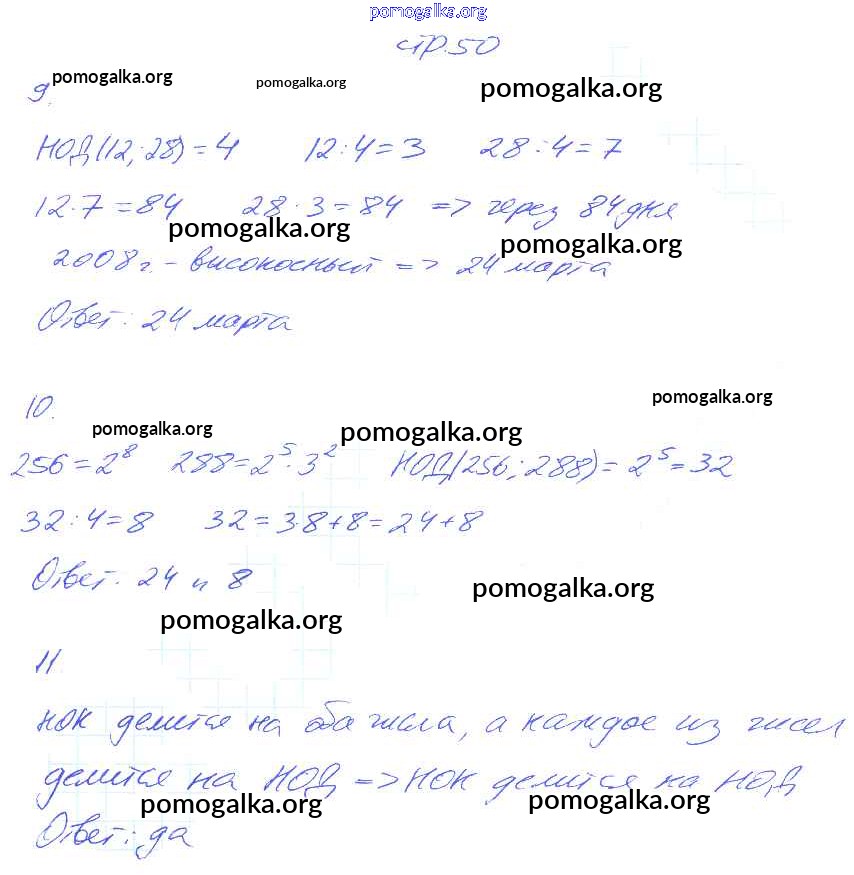 pomogalka.org
стр. 50
9. pomogalka.org pomogalka.org pomogalka.org
НОД(12; 28) = 4 12 : 4 = 3 28 : 4 = 7
12 · 7 = 84 28 · 3 = 84 => через 84 дня
pomogalka.org pomogalka.org
2008 г. - високосный => 24 марта
Ответ: 24 марта
10. pomogalka.org
pomogalka.org pomogalka.org
256 = 2⁸ 288 = 2⁵ · 3² НОД(256; 288) = 2⁵ = 32
32 : 4 = 8 32 = 3·8 + 8 = 24 + 8
Ответ. 24 и 8 pomogalka.org
pomogalka.org
11.
НОК делится на оба числа, а каждое из чисел
делится на НОД => НОК делится на НОД
pomogalka.org pomogalka.org
Ответ: да